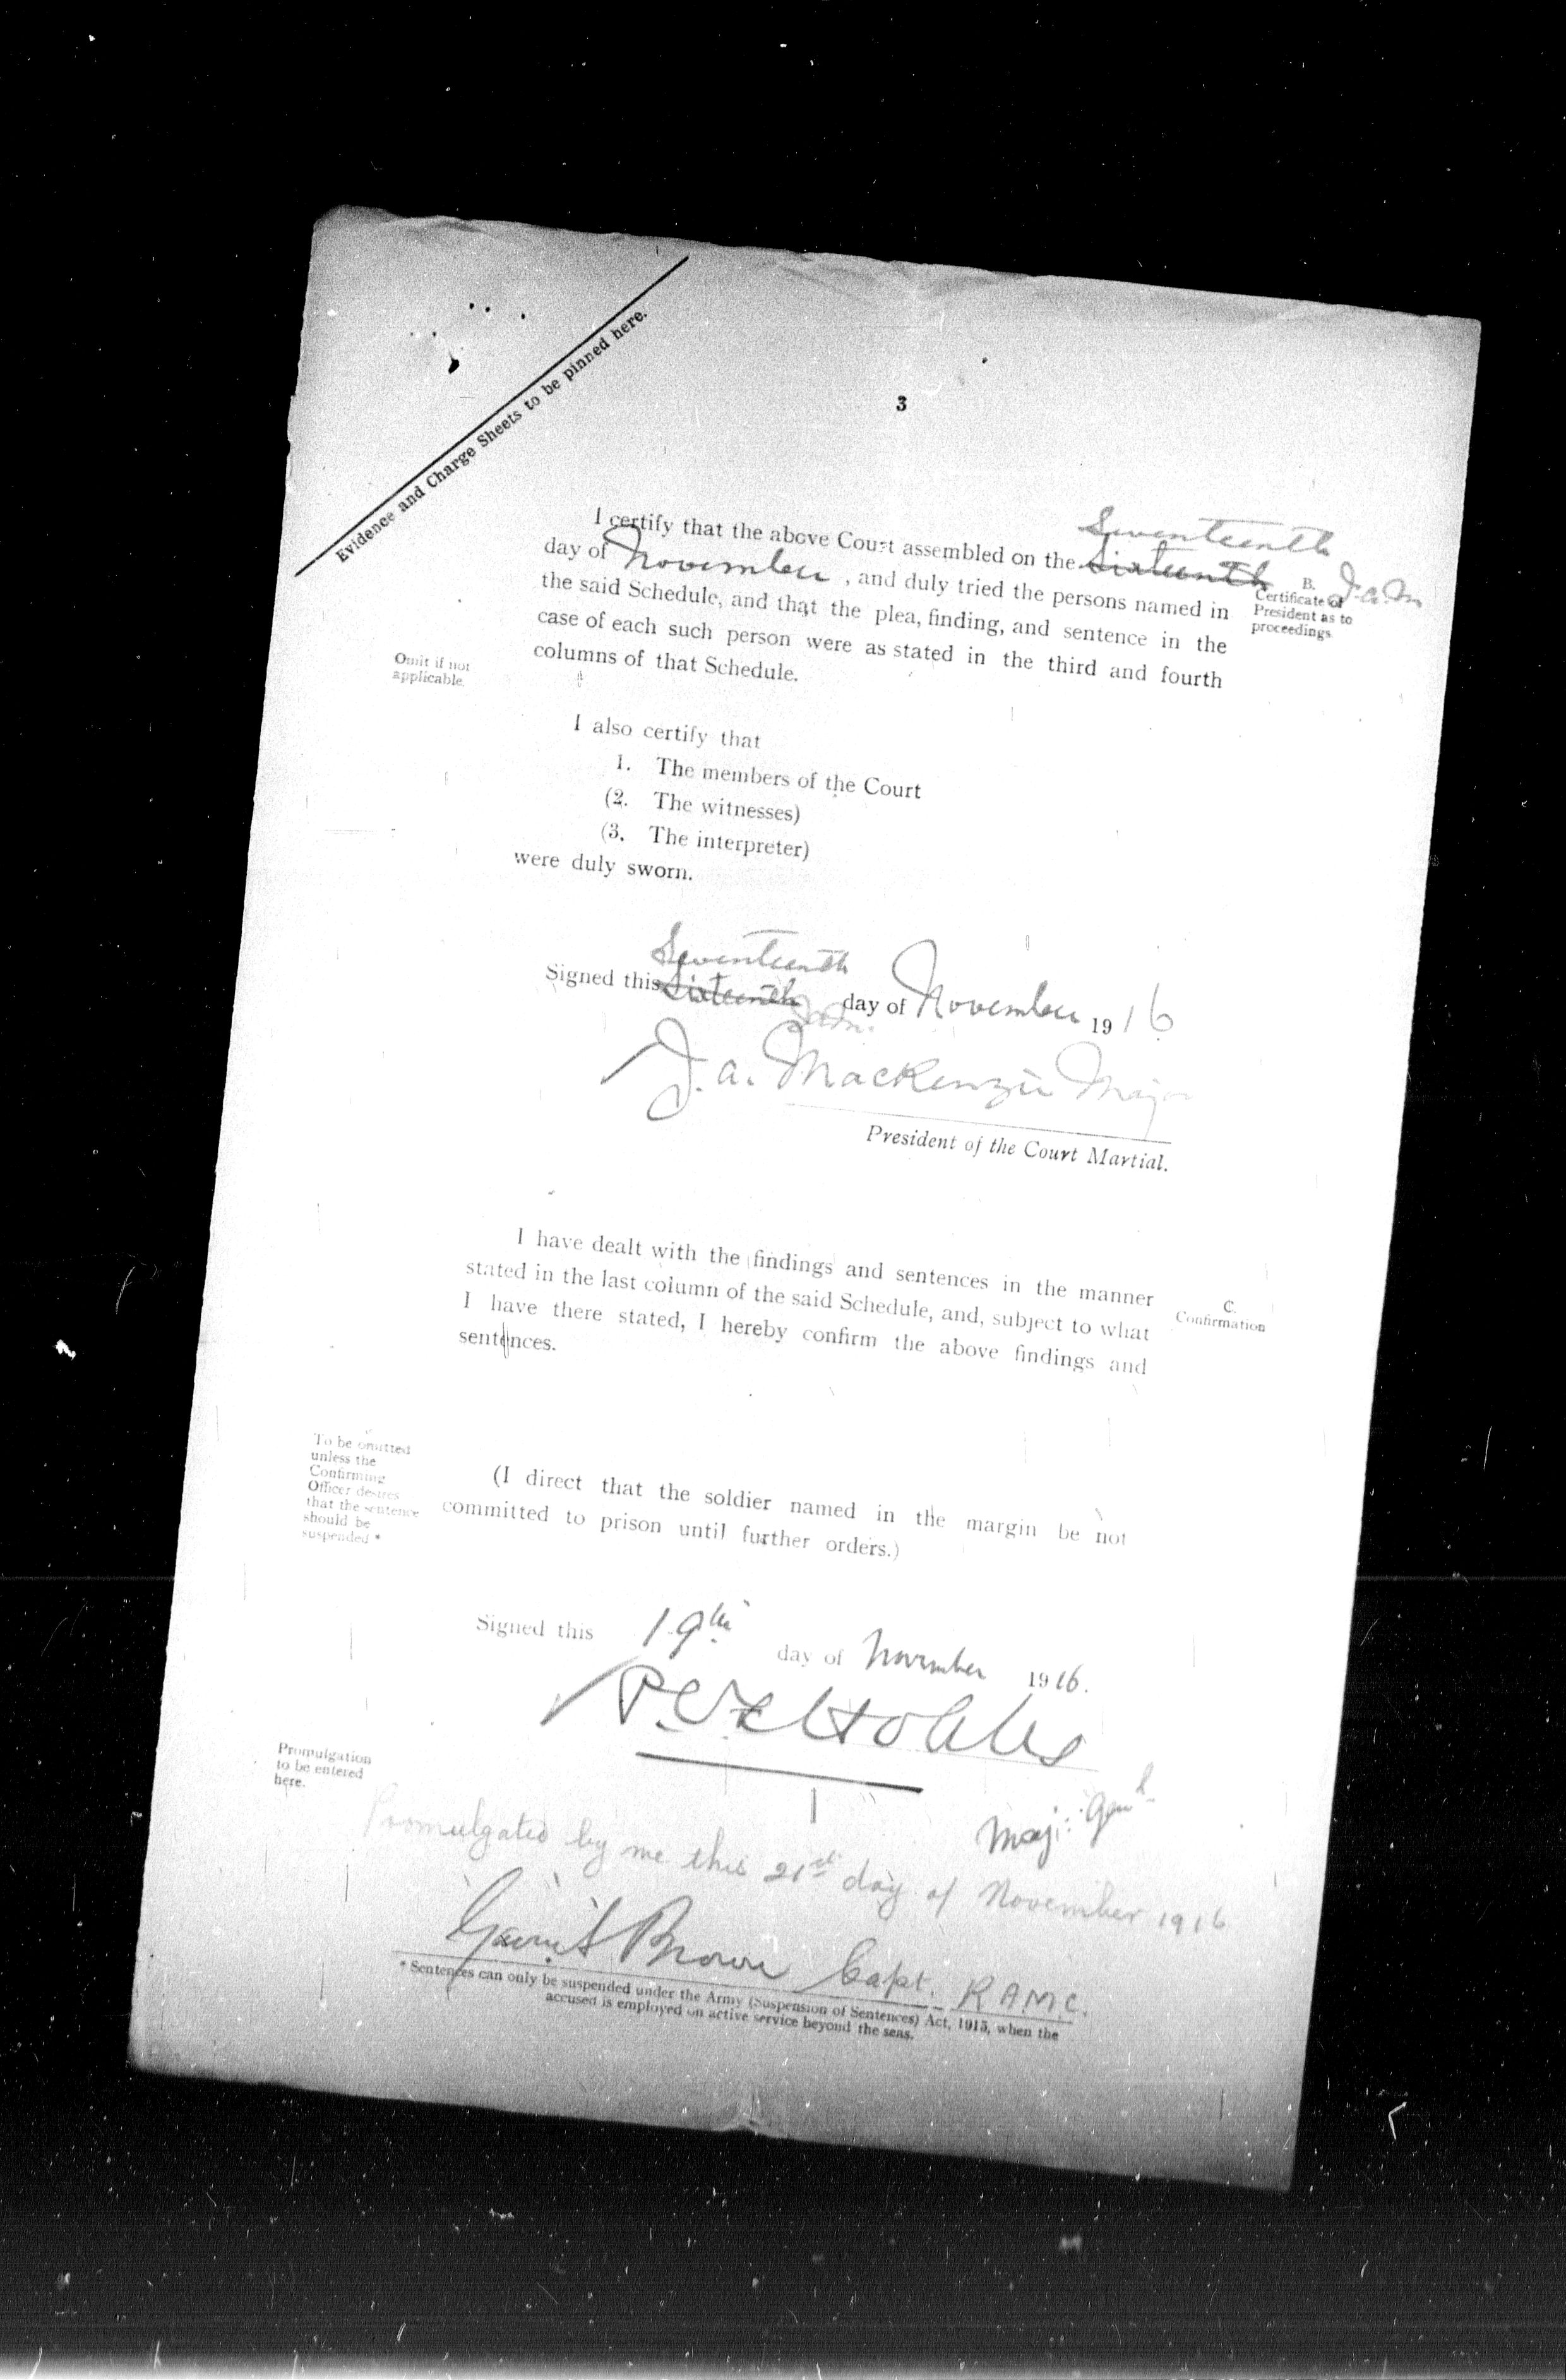 Evidence and Charge Sheets to be pinned here.
3
Seventeenth
I certify that the above Court assembled on the Sixteenth
day of November, and duly tried the persons named in
J.A.M
the said Schedule, and that the plea, finding, and sentence in the
case of each such person were as stated in the third and fourth
columns of that Schedule.
B.
Certificate of
President as to
proceedings.
Omit if not
applicable.
I also certify that
1. The members of the Court
(2. The witnesses)
(3. The interpreter)
were duly sworn.
Seventeenth
Signed this Sixteenth day of November 1916
J.A.M.
J. A. MacKenzie Major
President of the Court Martial.
I have dealt with the findings and sentences in the manner
stated in the last column of the said Schedule, and, subject to what
I have there stated, I hereby confirm the above findings and
sentences.
C.
Confirmation
To be omitted
unless the
Confirming
Officer desires
that the sentence
should be
suspended *
(I direct that the soldier named in the margin be not
committed to prison until further orders.)
Signed this 19th day of November 1916.
Maj: Genl
Promulgation
to be entered
here.
Promulgated by me this 21st day of November 1916
Brown Capt. R.A.M.C.
* Sentences can only be suspended under the Army (Suspension of Sentences) Act, 1915, when the
accused is employed on active service beyond the seas.